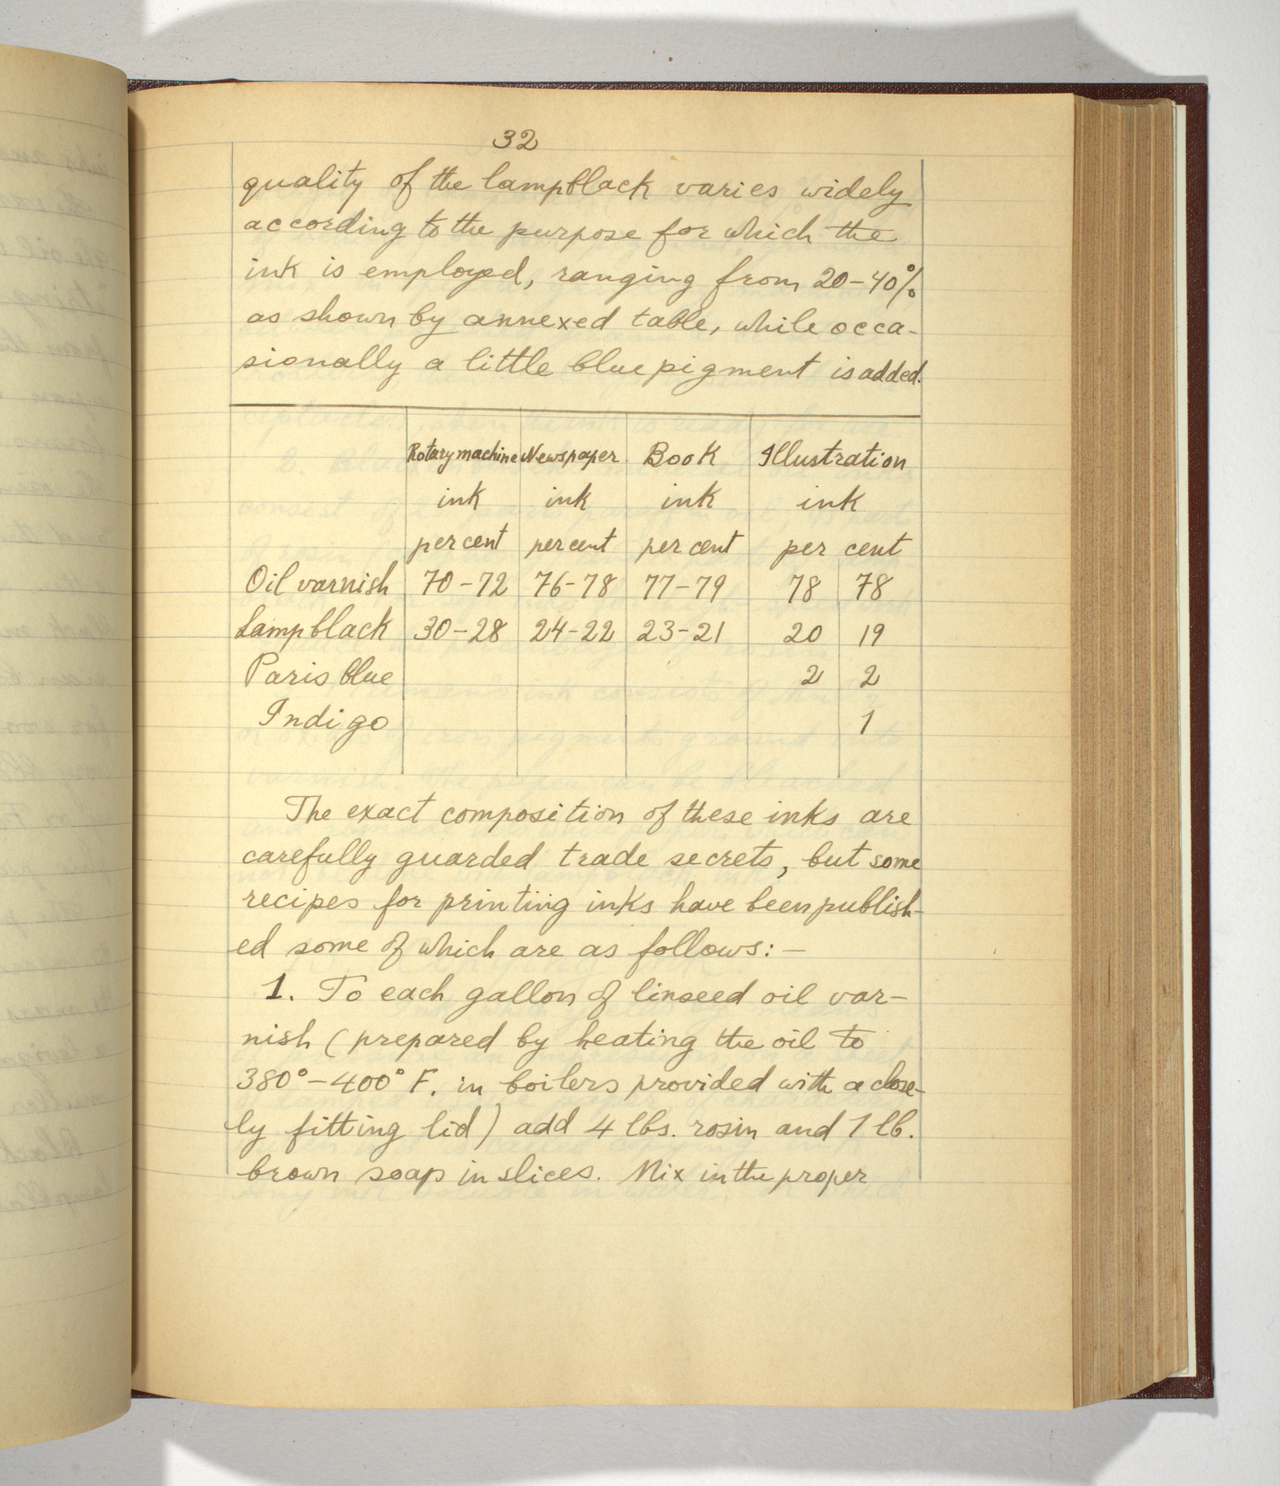 32
quality of the lampblack varies widely
according to the purpose for which the
ink is employed, ranging from 20-40%
as shown by annexed table, while occa-
sionally a little blue pigment is added.
Rotary machine Newspaper Book Illustration
ink ink ink ink
per cent per cent per cent per cent
Oil varnish 70-72 76-78 77-79 78 78
Lampblack 30-28 24-22 23-21 20 19
Paris blue 2 2
Indigo 1
The exact composition of these inks are
carefully guarded trade secrets, but some
recipes for printing inks have been publish-
ed some of which are as follows:-
1. To each gallon of linseed oil var-
nish (prepared by heating the oil to
380°-400° F. in boilers provided with a close-
ly fitting lid) add 4 lbs. rosin and 1 lb.
brown soap in slices. Mix in the proper